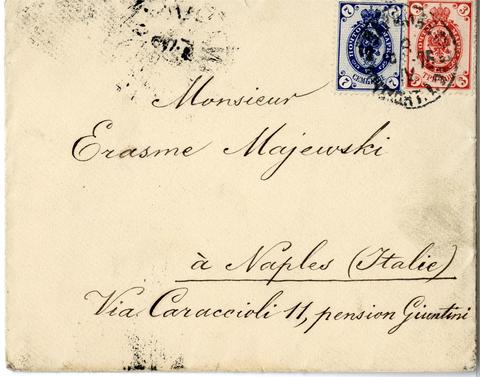 7 7
7 7
СЕМЬ КОП.
3
Monsieur
Erasme Majewski
à Naples (Italie)
Via Caraccioli 11, pension Giuntini